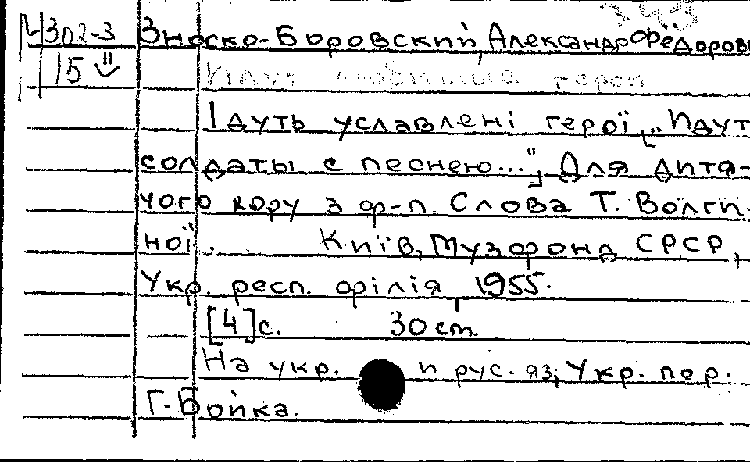 302-3 Зноско-Боровский, Александр Федорови
15
Ідуть уславлені герої „Идут
солдаты с песнею..." Для дитя-
чого хору з ф-п. Слова Т. Волги-
ної. Київ, Музфонд СРСР,
Укр. респ. філія, 1955.
[4]с. 30 cm.
На укр. и рус. яз; Укр. пер.
Г. Бойка.